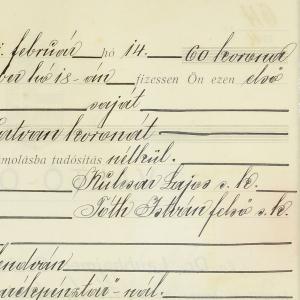 február hó 14. 60 korona
ber hó 18-án fizessen Ön ezen első
saját
hatvan koronát
ámolásba tudósítás nélkül.
Kulcsár Lajos s.k.
Tóth István felső s.k.
endván
arékpénztár"-nál.